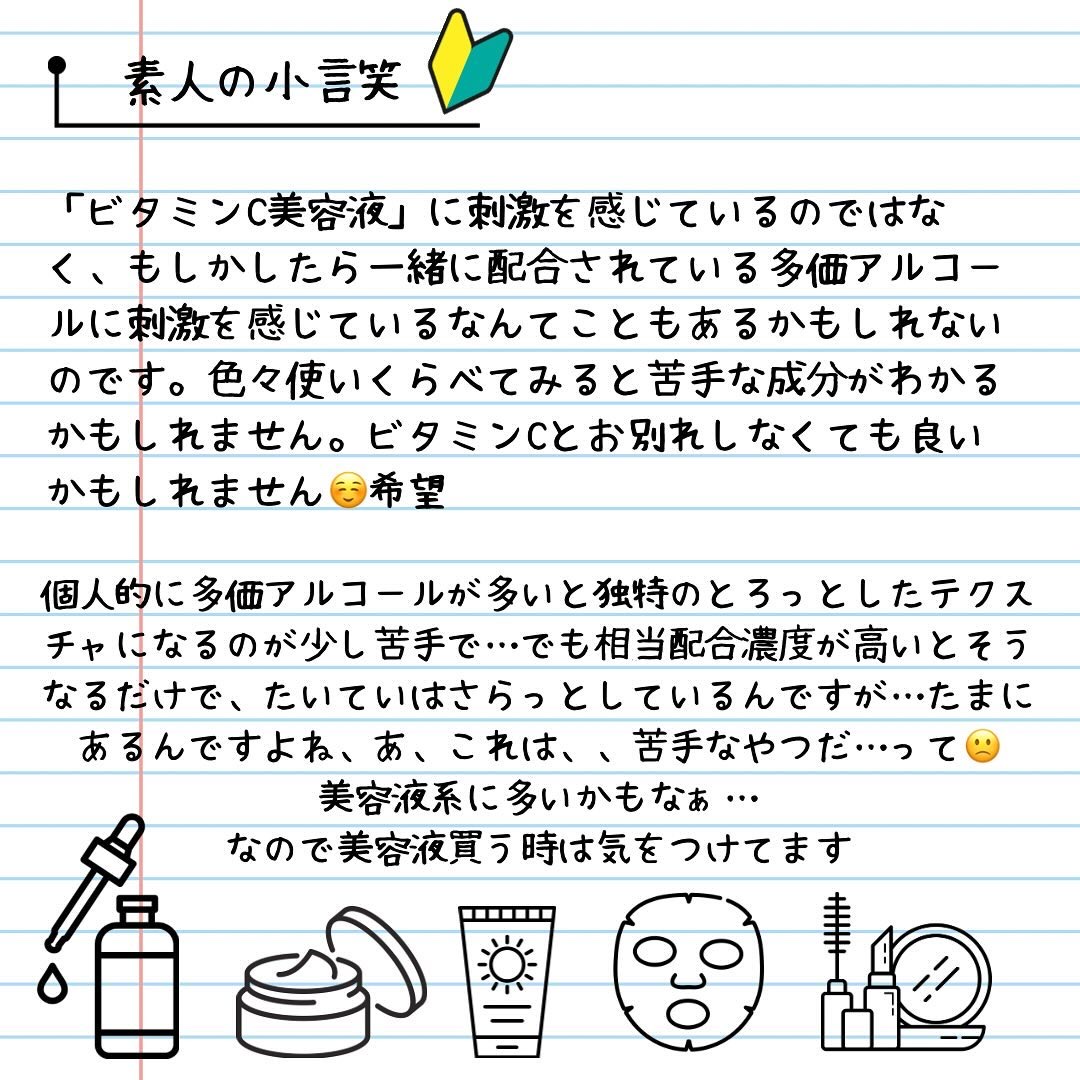 素人の小言笑
「ビタミンC美容液」に刺激を感じているのではな
く、もしかしたら一緒に配合されている多価アルコー
ルに刺激を感じているなんてこともあるかもしれない
のです。色々使いくらべてみると苦手な成分がわかる
かもしれません。ビタミンCとお別れしなくても良い
かもしれません☺️希望
個人的に多価アルコールが多いと独特のとろっとしたテクス
チャになるのが少し苦手で…でも相当配合濃度が高いとそう
なるだけで、たいていはさらっとしているんですが…たまに
あるんですよね、あ、これは、、苦手なやつだ…って🙁
美容液系に多いかもなぁ…
なので美容液買う時は気をつけてます